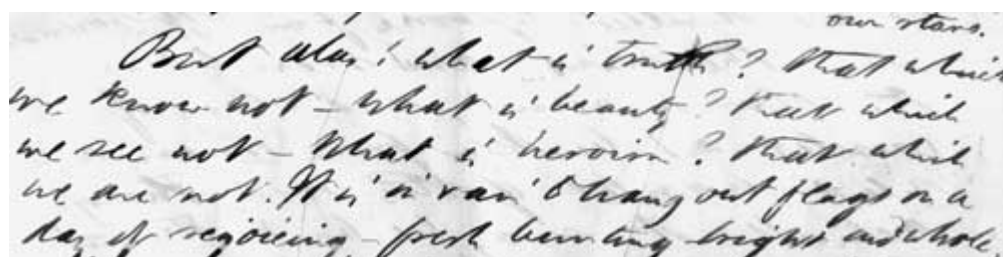 our stars.
But alas! what is truth? That which
we know not – What is beauty? That which
we see not – What is heroism? That which
we are not. It is in vain to hang out flags on a
day of rejoicing – fresh bunting bright and whole,